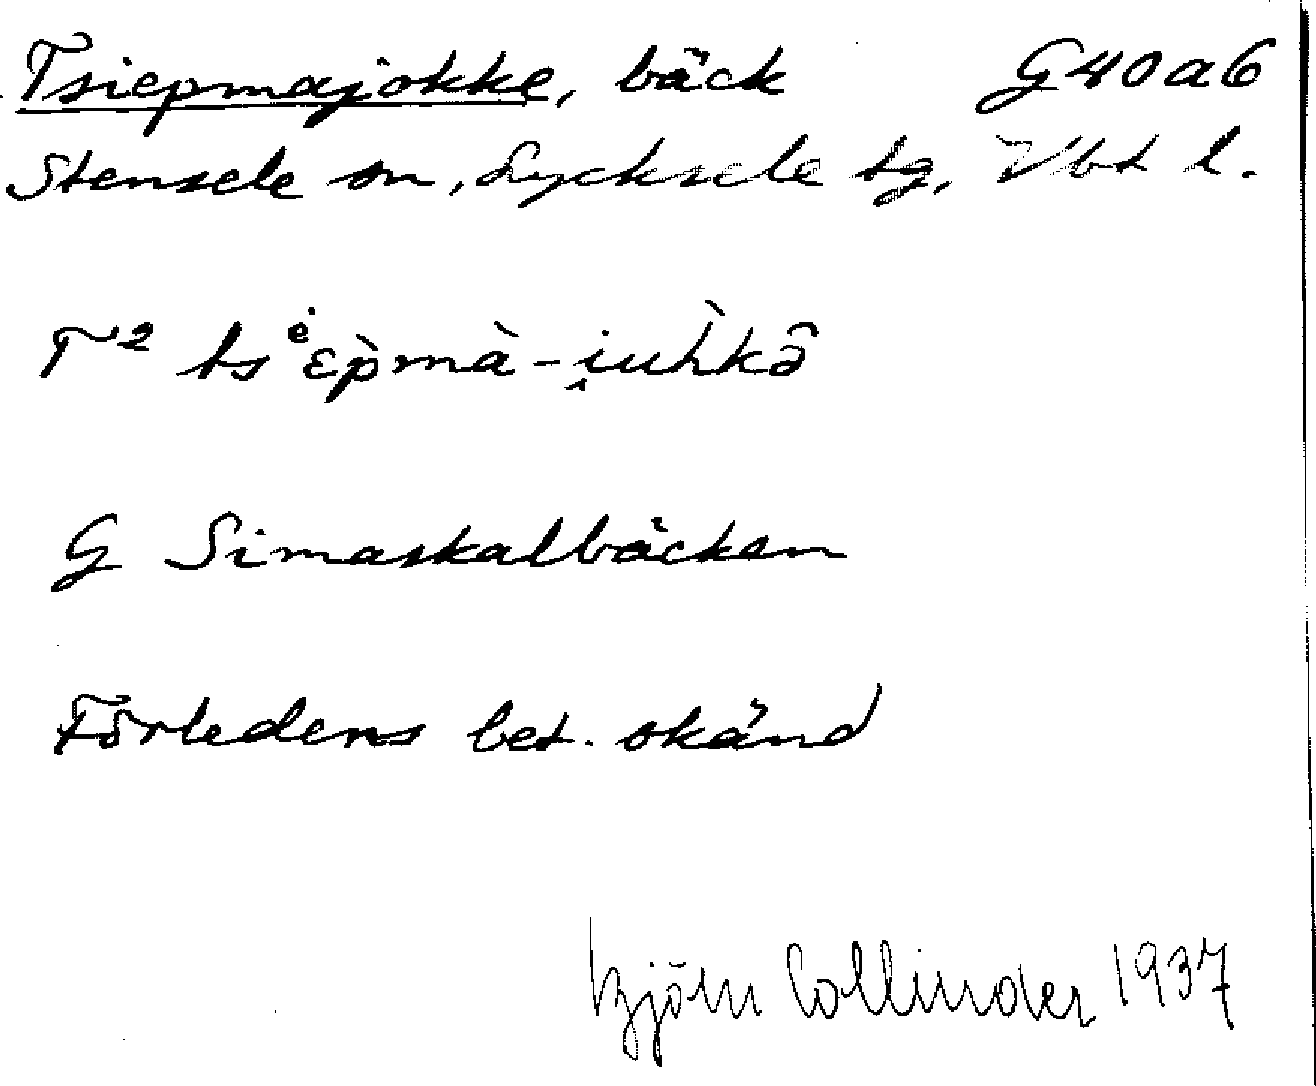 Tsiepmajokke, bäck G40a6
Stensele sn, Lycksele tg, Vbt l.
T² tsėɛp̀mà-i̭uh̀kô
G Simaskalbäcken
Förledens bet. okänd
Björn Collinder 1937